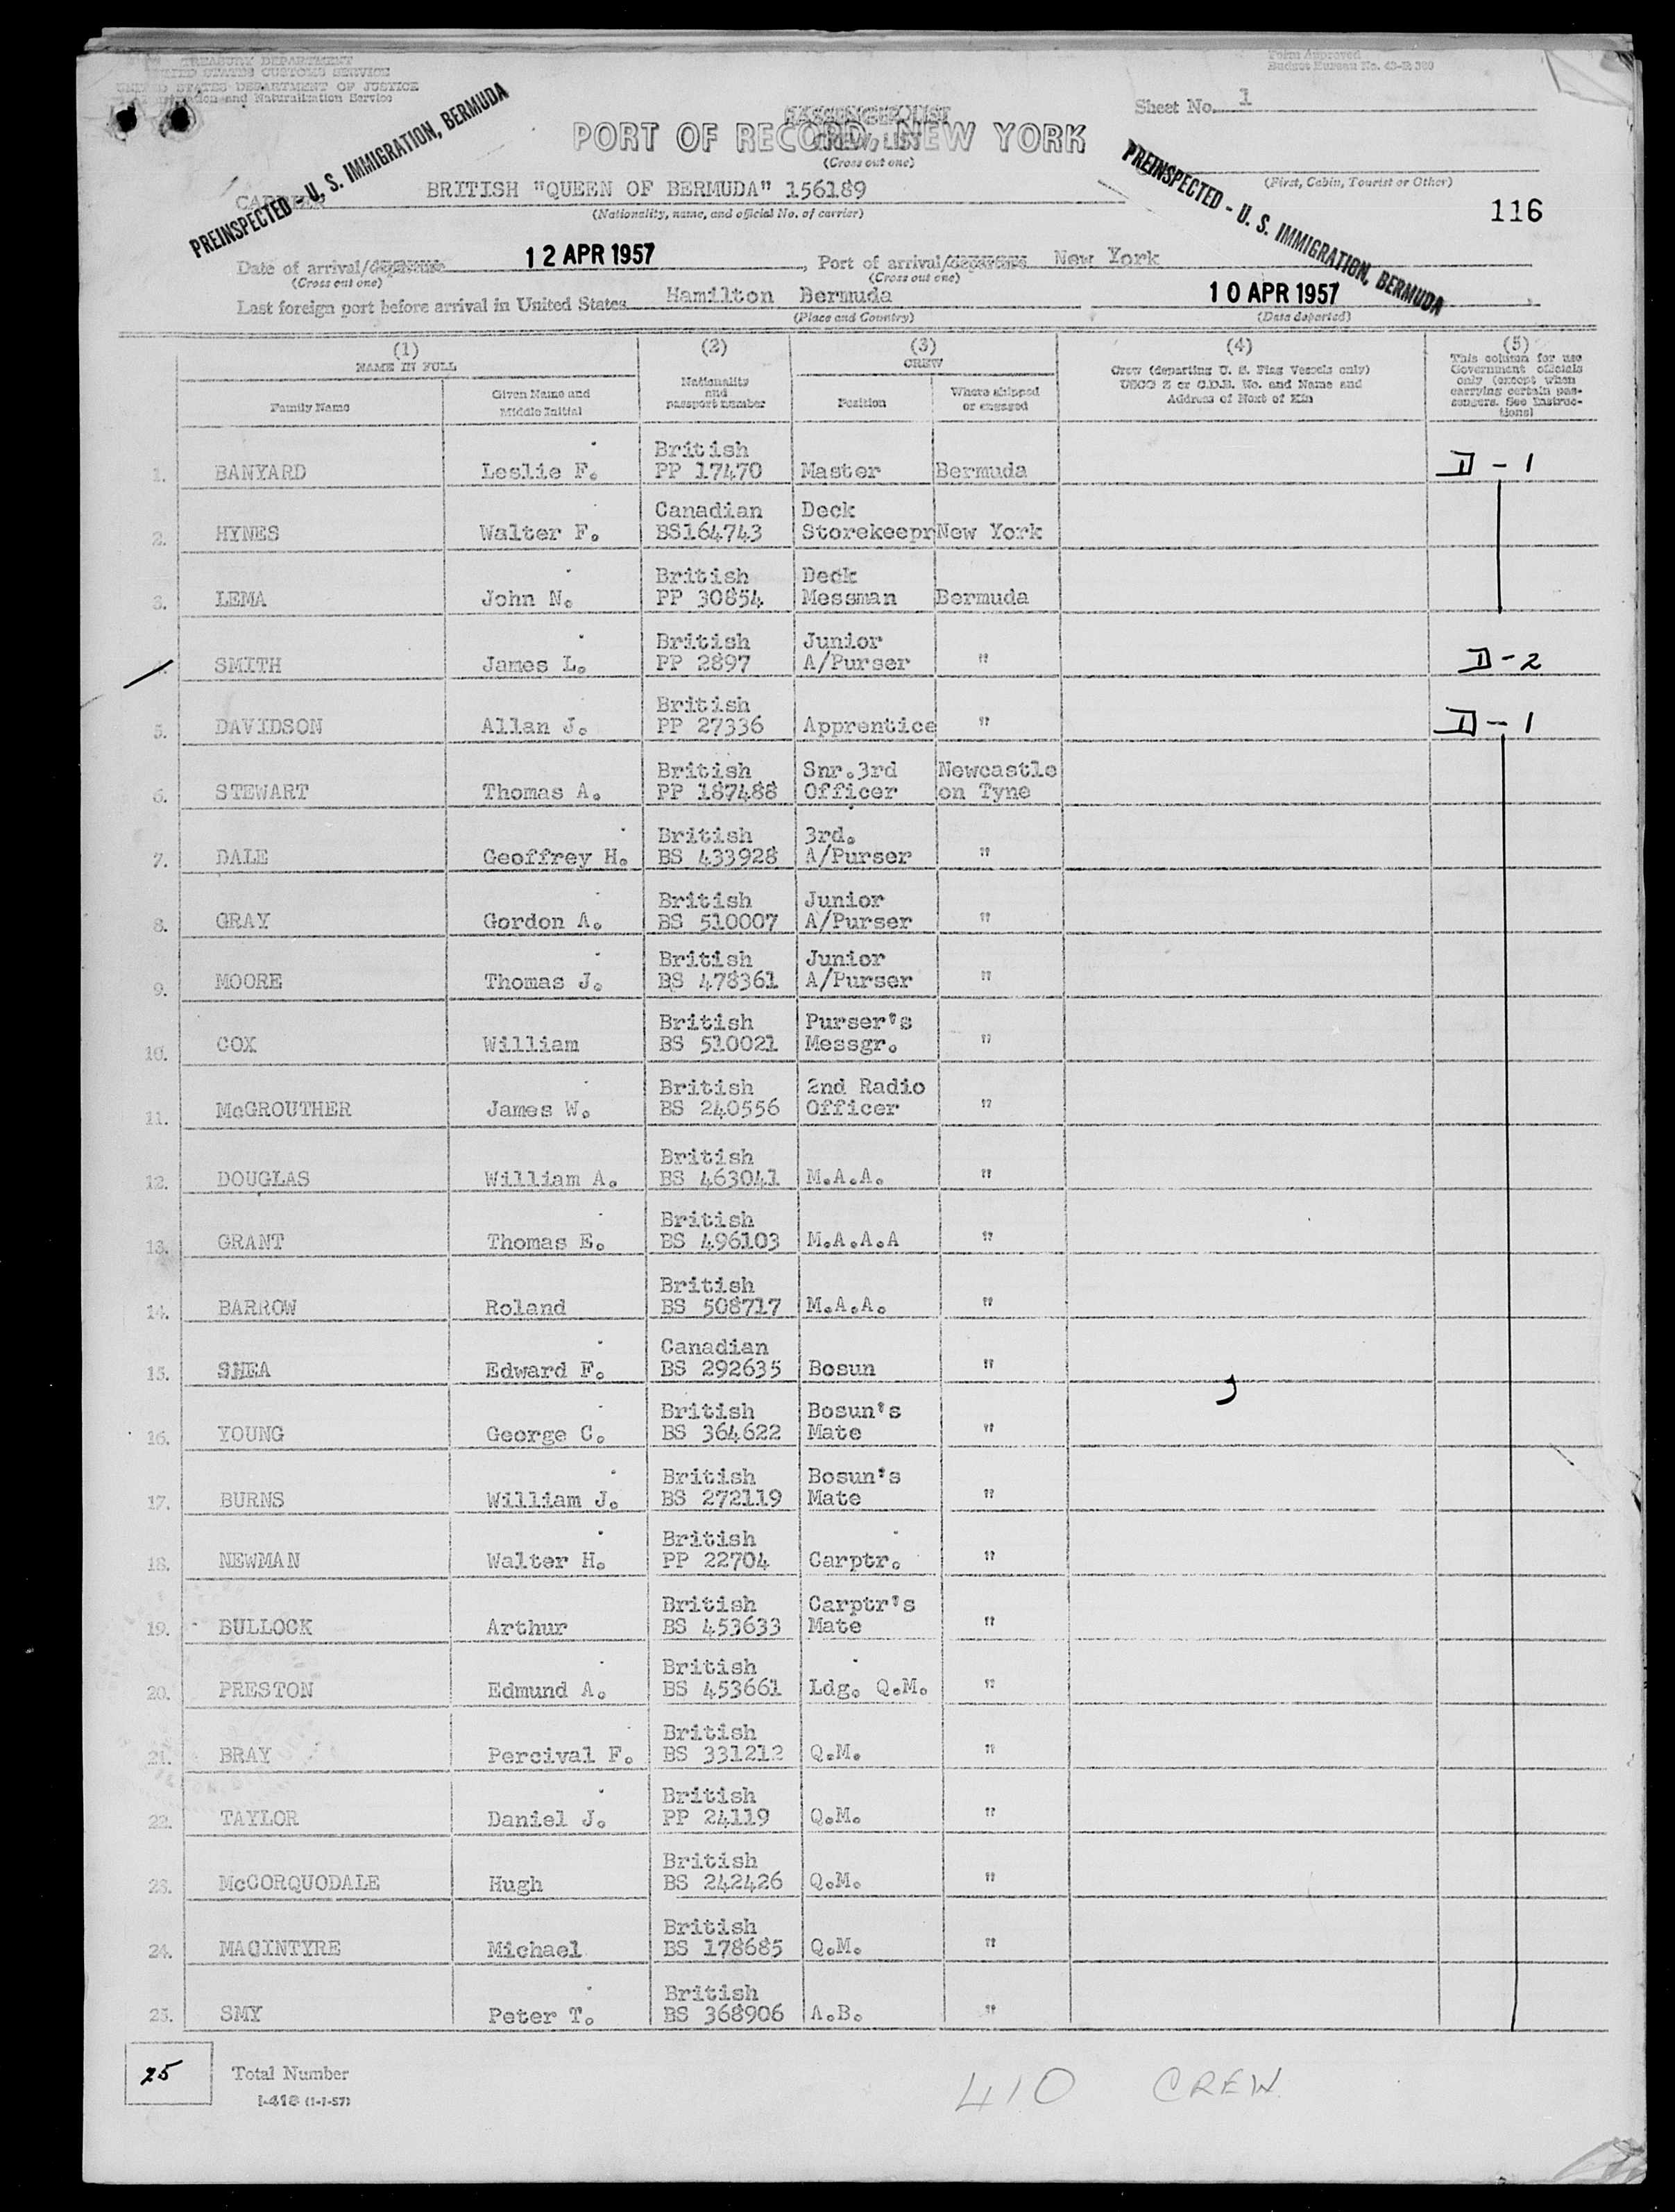 TREASURY DEPARTMENT
UNITED STATES CUSTOMS SERVICE
UNITED STATES DEPARTMENT OF JUSTICE
Immigration and Naturalization Service
Form Approved
Budget Bureau No. 43-R 380
Sheet No. 1
PASSENGER LIST
PORT OF RECORD, NEW YORK
CREW LIST
(Cross out one)
PREINSPECTED - U. S. IMMIGRATION, BERMUDA
PREINSPECTED - U. S. IMMIGRATION, BERMUDA
(First, Cabin, Tourist or Other)
CARRIER BRITISH "QUEEN OF BERMUDA" 156189
(Nationality, name, and official No. of carrier)
116
Date of arrival/departure 12 APR 1957, Port of arrival/departure New York
(Cross out one) (Cross out one)
Last foreign port before arrival in United States Hamilton Bermuda 10 APR 1957
(Place and Country) (Date departed)
(1) (2) (3) (4) (5)
NAME IN FULL
Family Name
Given Name and Middle Initial
Nationality and passport number
CREW
Position
Where shipped or engaged
Crew (departing U. S. Flag Vessels only)
USCG Z or C.D.B. No. and Name and
Address of Next of Kin
This column for use
Government officials
only (except when
carrying certain pas-
sengers. See Instruc-
tions)
British
1. BANYARD Leslie F. PP 17470 Master Bermuda D-1
Canadian Deck
2. HYNES Walter F. BS164743 Storekeepr New York
British Deck
3. LEMA John N. PP 30854 Messman Bermuda
British Junior
SMITH James L. PP 2897 A/Purser " D-2
British
5. DAVIDSON Allan J. PP 27336 Apprentice " D-1
British Snr.3rd Newcastle
6. STEWART Thomas A. PP 187488 Officer on Tyne
British 3rd.
7. DALE Geoffrey H. BS 433928 A/Purser "
British Junior
8. GRAY Gordon A. BS 510007 A/Purser "
British Junior
9. MOORE Thomas J. BS 478361 A/Purser "
British Purser's
10. COX William BS 510021 Messgr. "
British 2nd Radio
11. McGROUTHER James W. BS 240556 Officer "
British
12. DOUGLAS William A. BS 463041 M.A.A. "
British
13. GRANT Thomas E. BS 496103 M.A.A.A "
British
14. BARROW Roland BS 508717 M.A.A. "
Canadian
15. SHEA Edward F. BS 292635 Bosun "
British Bosun's
16. YOUNG George C. BS 364622 Mate "
British Bosun's
17. BURNS William J. BS 272119 Mate "
British
18. NEWMAN Walter H. PP 22704 Carptr. "
British Carptr's
19. BULLOCK Arthur BS 453633 Mate "
British
20. PRESTON Edmund A. BS 453661 Ldg. Q.M. "
British
21. BRAY Percival F. BS 331212 Q.M. "
British
22. TAYLOR Daniel J. PP 24119 Q.M. "
British
23. McCORQUODALE Hugh BS 242426 Q.M. "
British
24. MACINTYRE Michael BS 178685 Q.M. "
British
25. SMY Peter T. BS 368906 A.B. "
25 Total Number
I-418 (1-1-57)
410 CREW